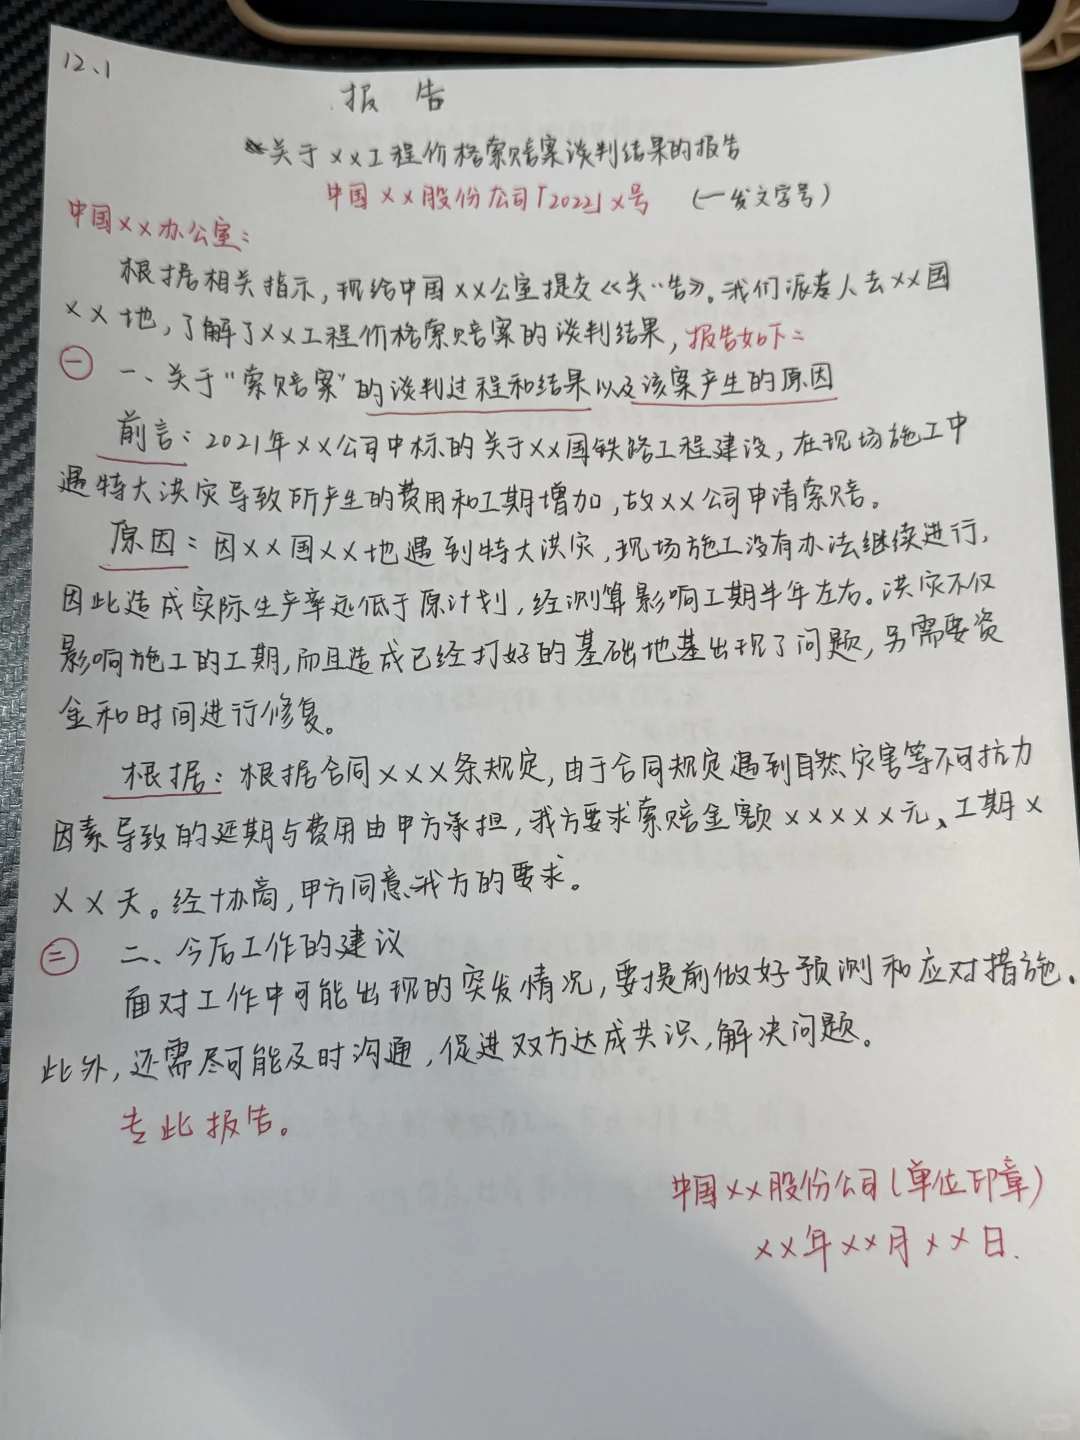 12、1
报 告
关于××工程价格索赔案谈判结果的报告
中国××股份公司「2022」×号 (一发文字号)
中国××办公室：
根据相关指示，现给中国××公室提交《关··告》。我们派差人去××国
××地，了解了××工程价格索赔案的谈判结果，报告如下：
㊀ 一、关于“索赔案”的谈判过程和结果以及该案产生的原因
前言：2021年××公司中标的关于××国铁路工程建设，在现场施工中
遇特大洪灾导致所产生的费用和工期增加，故××公司申请索赔。
原因：因××国××地遇到特大洪灾，现场施工没有办法继续进行，
因此造成实际生产率远低于原计划，经测算影响工期半年左右。洪灾不仅
影响施工的工期，而且造成已经打好的基础地基出现了问题，另需要资
金和时间进行修复。
根据：根据合同×××条规定，由于合同规定遇到自然灾害等不可抗力
因素导致的延期与费用由甲方承担，我方要求索赔金额×××××元、工期×
××天。经协商，甲方同意我方的要求。
㊁ 二、今后工作的建议
面对工作中可能出现的突发情况，要提前做好预测和应对措施。
此外，还需尽可能及时沟通，促进双方达成共识，解决问题。
专此报告。
中国××股份公司(单位印章)
××年××月××日.